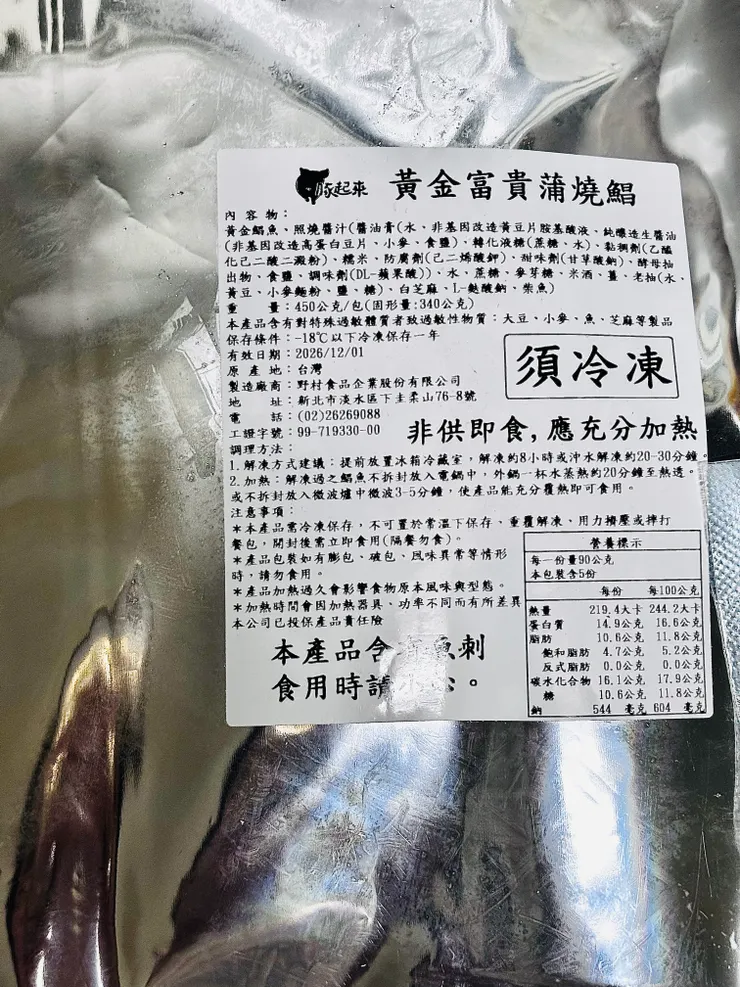 豕起來 黃金富貴蒲燒鯧
內容物：
黃金鯧魚、照燒醬汁(醬油膏(水、非基因改造黃豆片胺基酸液、純釀造生醬油
(非基因改造高蛋白豆片、小麥、食鹽)、轉化液糖(蔗糖、水)、黏稠劑(乙醯
化己二酸二澱粉)、糯米、防腐劑(己二烯酸鉀)、甜味劑(甘草酸鈉)、酵母抽
出物、食鹽、調味劑(DL-蘋果酸))、水、蔗糖、麥芽糖、米酒、薑、老抽(水、
黃豆、小麥麵粉、鹽、糖)、白芝麻、L-麩酸鈉、柴魚)
重 量：450公克/包(固形量:340公克)
本產品含有對特殊過敏體質者致過敏性物質：大豆、小麥、魚、芝麻等製品
保存條件：-18℃以下冷凍保存一年
有效日期：2026/12/01
原產地：台灣
製造廠商：野村食品企業股份有限公司
地 址：新北市淡水區下圭柔山76-8號
電 話：(02)26269088
工證字號：99-719330-00
須冷凍
非供即食,應充分加熱
調理方法：
1.解凍方式建議：提前放置冰箱冷藏室，解凍約8小時或沖水解凍約20-30分鐘。
2.加熱：解凍過之鯧魚不拆封放入電鍋中，外鍋一杯水蒸熱約20分鐘至熱透。
或不拆封放入微波爐中微波3-5分鐘，使產品能充分覆熱即可食用。
注意事項：
*本產品需冷凍保存，不可置於常溫下保存、重覆解凍、用力擠壓或摔打
餐包，開封後需立即食用(隔餐勿食)。
*產品包裝如有膨包、破包、風味異常等情形
時，請勿食用。
*產品加熱過久會影響食物原本風味與型態。
*加熱時間會因加熱器具、功率不同而有所差異
本公司已投保產品責任險
本產品含 魚刺
食用時請 。
營養標示
每一份量90公克
本包裝含5份
每份 每100公克
熱量 219.4大卡 244.2大卡
蛋白質 14.9公克 16.6公克
脂肪 10.6公克 11.8公克
飽和脂肪 4.7公克 5.2公克
反式脂肪 0.0公克 0.0公克
碳水化合物 16.1公克 17.9公克
糖 10.6公克 11.8公克
鈉 544 毫克 604 毫克